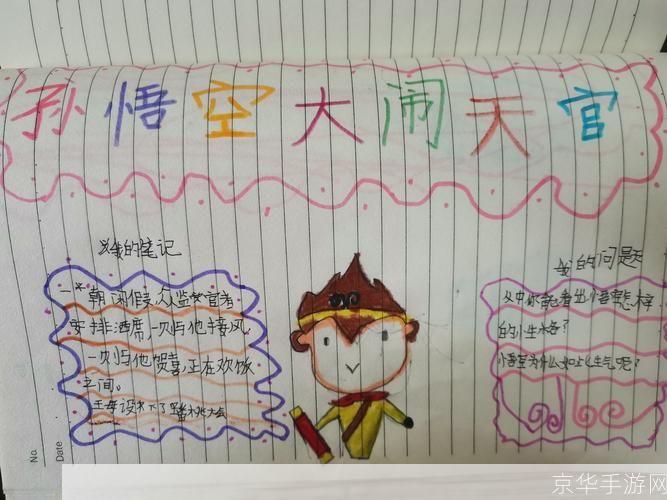 孙悟空大闹天官
我的笔记
一朝闲假,众监官者
安排酒席,一则与他接风
一则与他贺喜,正在欢饭
之间。
王母设下了蟠桃大会
我的问题
文中你能看出悟空怎样
的小生水各?
悟空为什么如此生气呢?
No.
Date
京华手游网